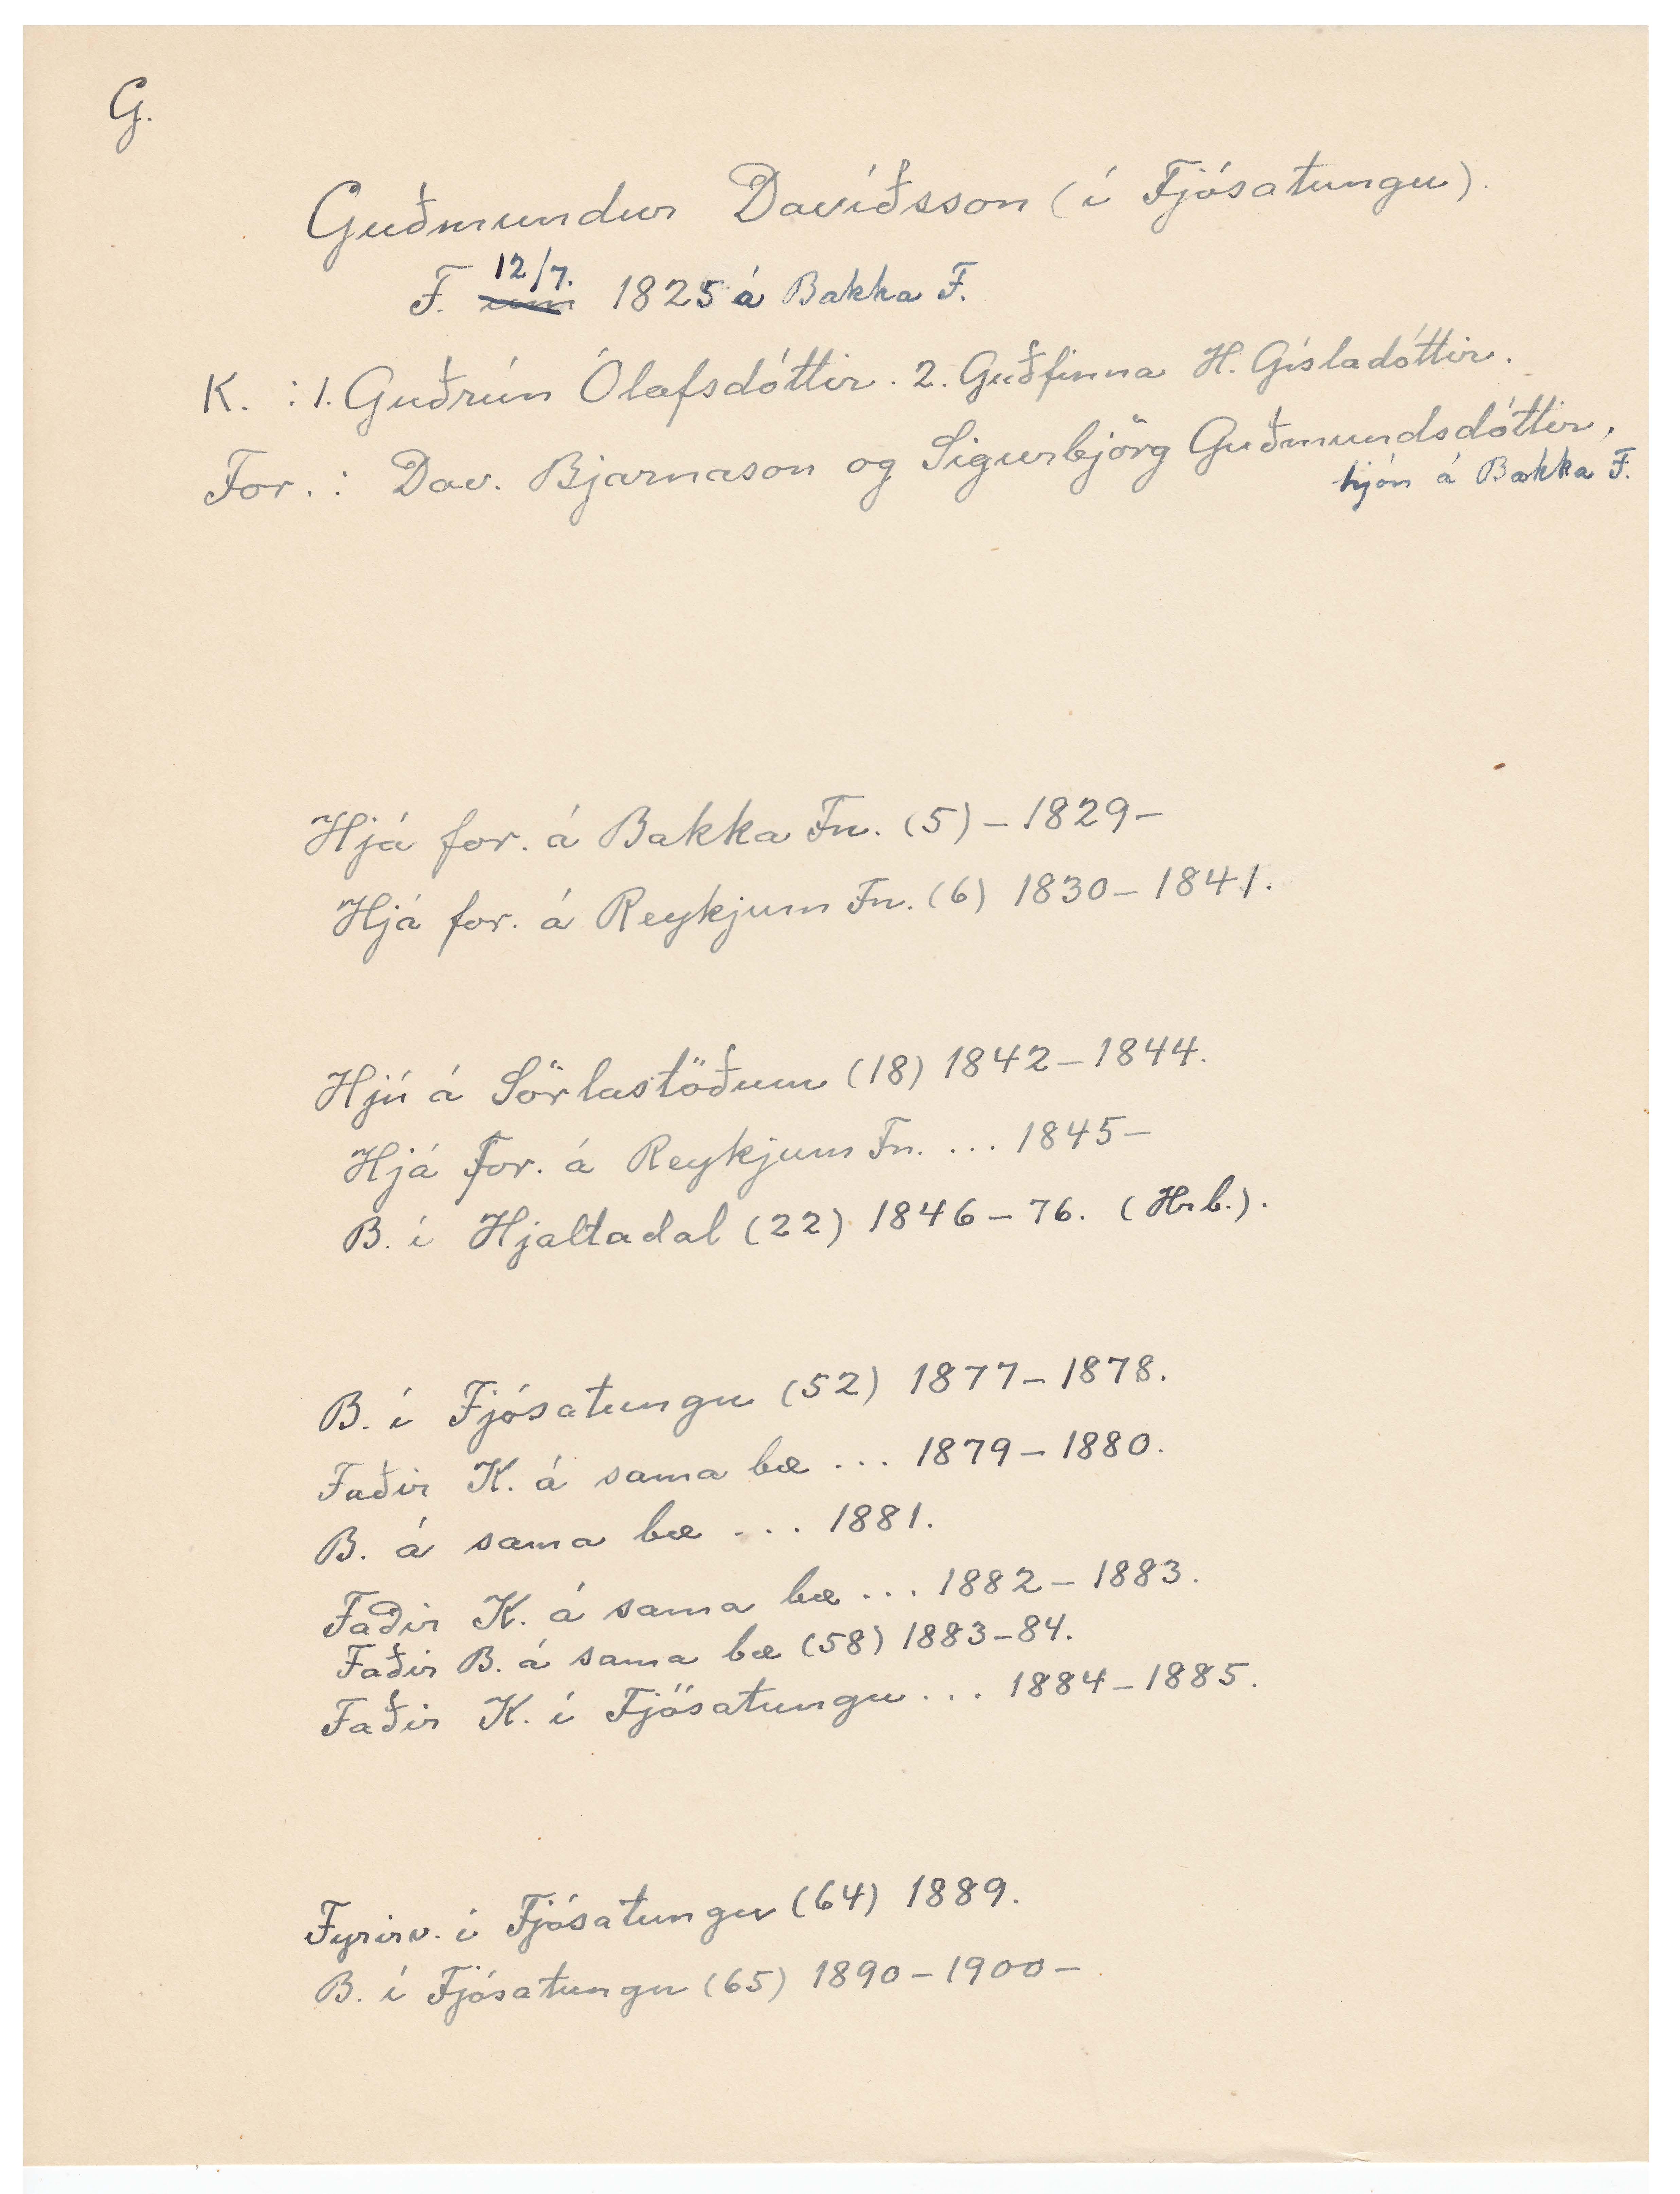 G.
Guðmundur Davíðsson (í Fjósatungu).
F. 12/7. 1825 á Bakka F.
K. : 1. Guðrún Ólafsdóttir. 2. Guðfinna H. Gísladóttir.
For. : Dav. Bjarnason og Sigurbjörg Guðmundsdóttir,
hjón á Bakka F.
Hjá for. á Bakka Fn. (5) – 1829 –
Hjá for. á Reykjum Fn. (6) 1830 – 1841.
Hjú á Sörlastöðum (18) 1842 – 1844.
Hjá For. á Reykjum Fn. ... 1845 –
B. í Hjaltadal (22) 1846 – 76. (Hrb.).
B. í Fjósatungu (52) 1877 – 1878.
Faðir K. á sama bæ ... 1879 – 1880.
B. á sama bæ ... 1881.
Faðir K. á sama bæ ... 1882 – 1883.
Faðir B. á sama bæ (58) 1883 – 84.
Faðir K. í Fjósatungu ... 1884 – 1885.
Fyrirv. í Fjósatungu (64) 1889.
B. í Fjósatungu (65) 1890 – 1900 –